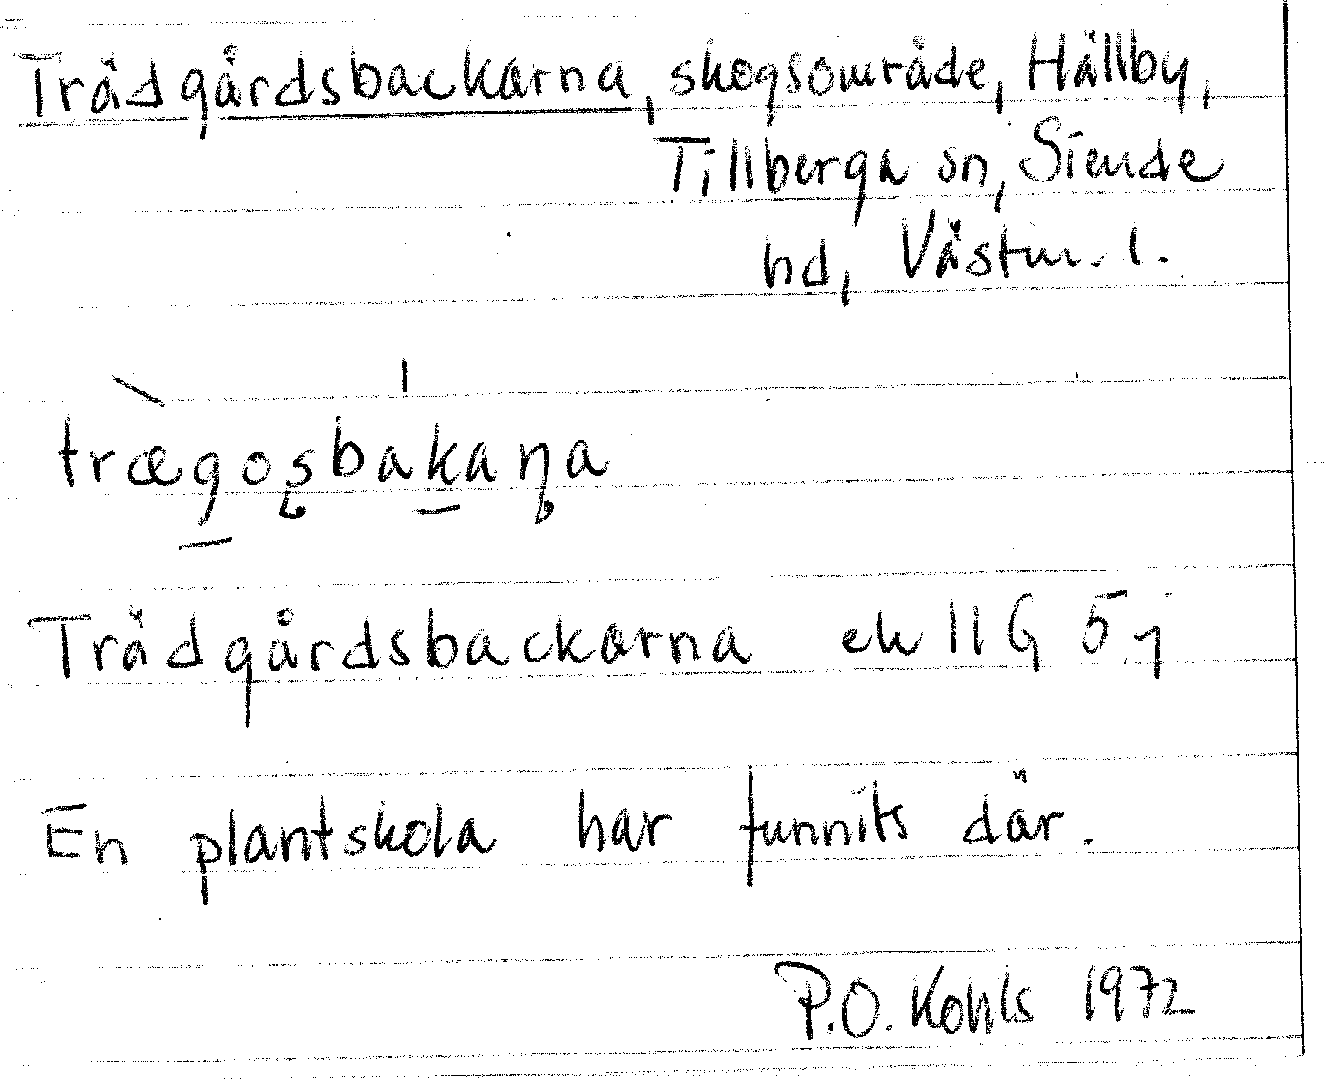 Trädgårdsbackarna, skogsområde, Hällby,
Tillberga sn, Siende
hd, Västm. l.
trægoʂbakaɳa
Trädgårdsbackarna ek 11 G 5 j
En plantskola har funnits där.
P.O. Kohls 1972